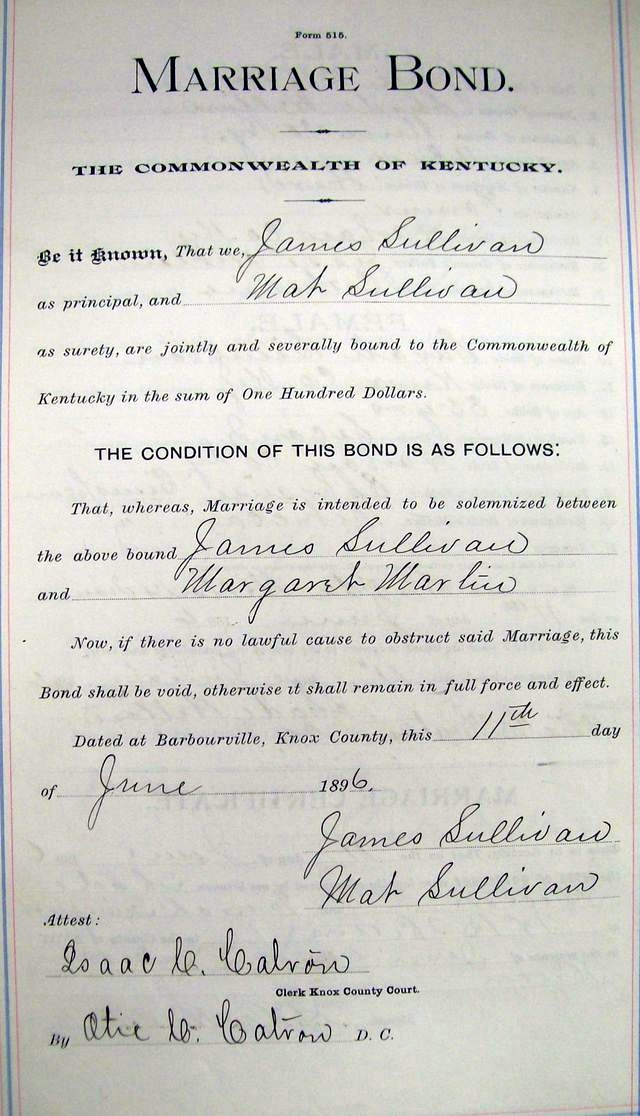 Form 515.
MARRIAGE BOND.
THE COMMONWEALTH OF KENTUCKY.
Be it Known, That we, James Sullivan
as principal, and Mat Sullivan
as surety, are jointly and severally bound to the Commonwealth of
Kentucky in the sum of One Hundred Dollars.
THE CONDITION OF THIS BOND IS AS FOLLOWS:
That, whereas, Marriage is intended to be solemnized between
the above bound James Sullivan
and Margaret Martin
Now, if there is no lawful cause to obstruct said Marriage, this
Bond shall be void, otherwise it shall remain in full force and effect.
Dated at Barbourville, Knox County, this 11th day
of June 1896.
James Sullivan
Mat Sullivan
Attest:
Isaac C. Catron
Clerk Knox County Court.
By Otie C. Catron D. C.